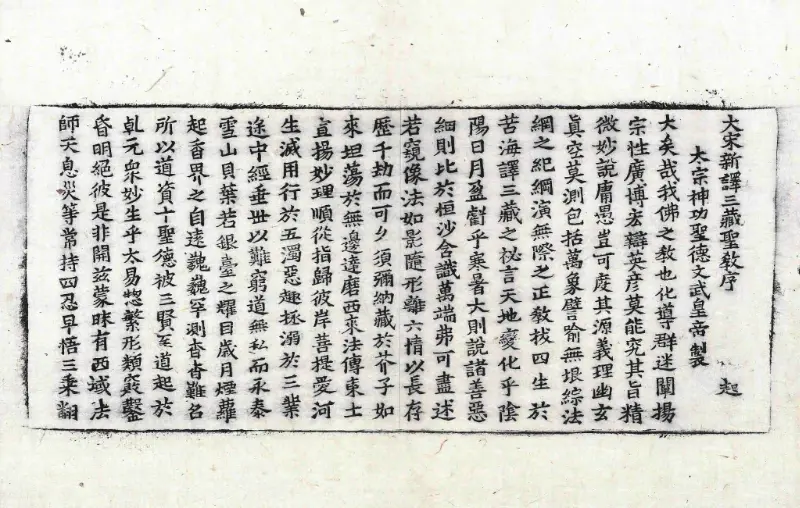 大宋新譯三藏聖教序 起
太宗神功聖德文武皇帝製
大矣哉我佛之教也化導群迷闡揚
宗性廣博宏辯英彦莫能究其旨精
微妙說庸愚豈可度其源義理幽玄
真空莫測包括萬象譬喻無垠綜法
網之紀綱演無際之正教拔四生於
苦海譯三藏之祕言天地變化乎陰
陽日月盈虧乎寒暑大則說諸善惡
細則比於恒沙含識萬端弗可盡述
若窺像法如影隨形離六情以長存
歷千劫而可久須彌納藏於芥子如
來坦蕩於無邊達磨西來法傳東土
宣揚妙理順從指歸彼岸菩提愛河
生滅用行於五濁惡趣拯溺於三業
途中經垂世以難窮道無私而永泰
雪山貝葉若銀臺之耀目歲月煙蘿
起香界之自遠巍巍罕測杳杳難名
所以道資十聖德被三賢至道起於
乹元衆妙生乎太易惣繁形類竅鑿
昏明絕彼是非開兹蒙昧有西域法
師天息災等常持四忍早悟三乘翻